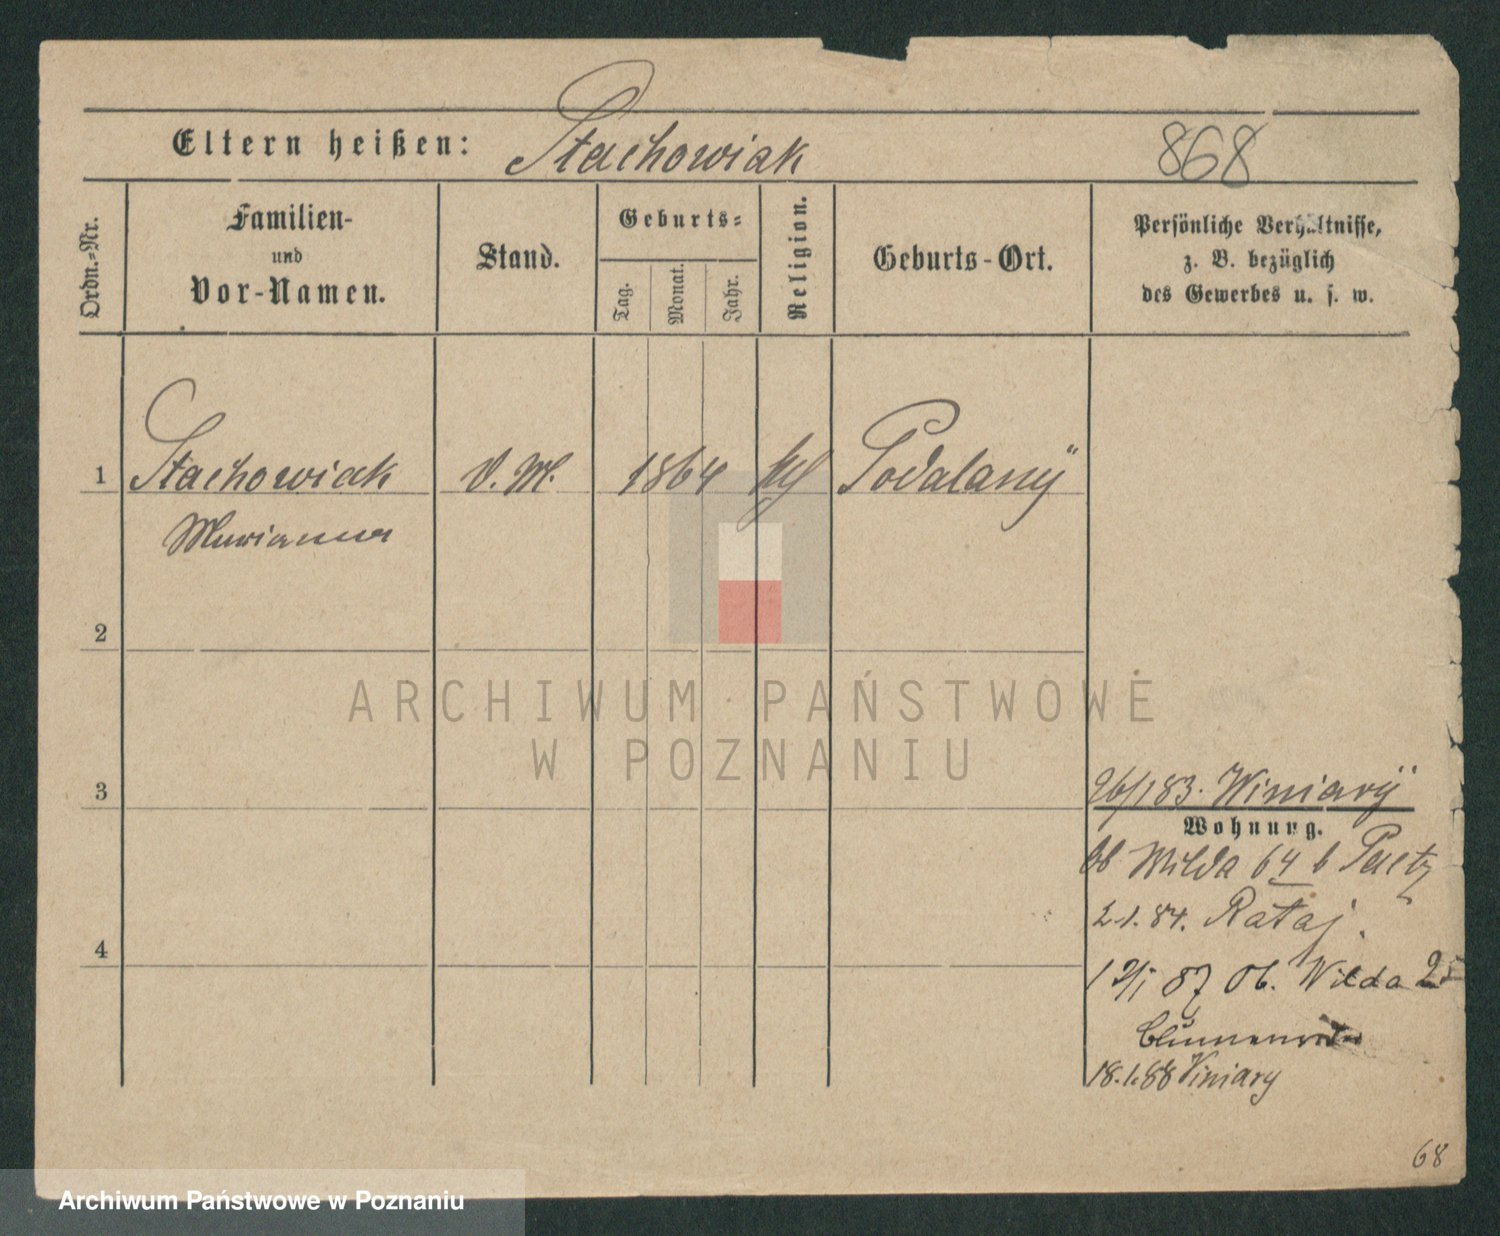 Eltern heißen: Stachowiak 868
Ordn.-Nr.
Familien-
und
Vor-Namen.
Stand.
Geburts-
Tag.
Monat.
Jahr.
Religion.
Geburts-Ort.
Persönliche Verhältnisse,
z. B. bezüglich
des Gewerbes u. s. w.
1 Stachowiak d. M. 1864 Podalany
Marianna
2
ARCHIWUM PAŃSTWOWE
W POZNANIU
3
26/1 83. Winiary
Wohnung.
Wilda 64 b
2.1.84. Rataj.
12/1 87 Ob. Wilda
4
18.1.88 Winiary
68
Archiwum Państwowe w Poznaniu